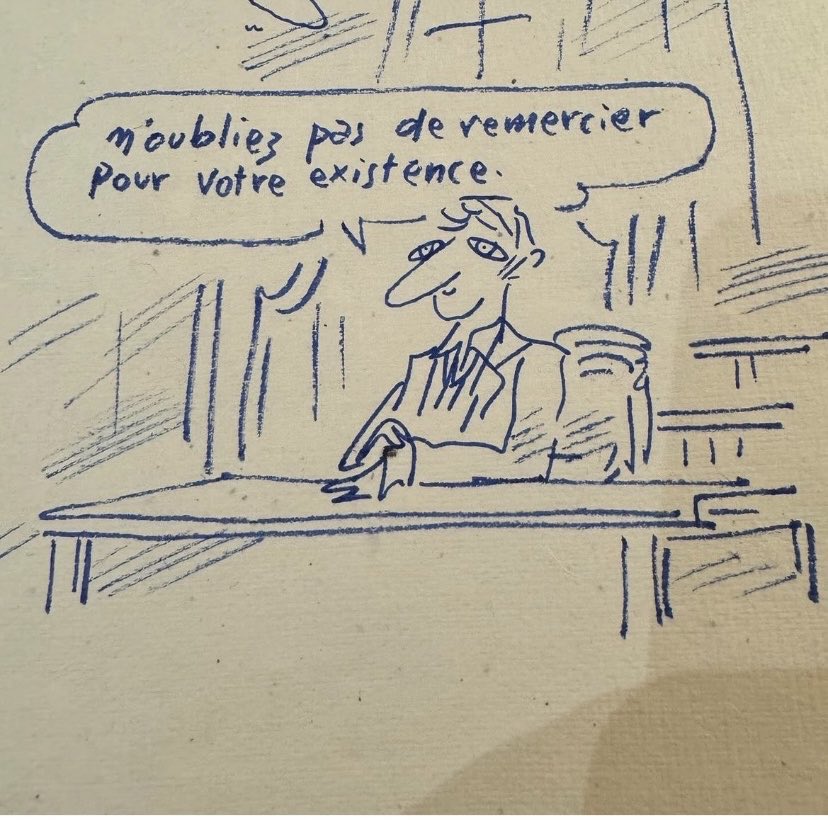 n'oubliez pas de remercier
pour votre existence.